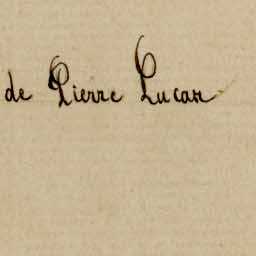 de Pierre Lucas